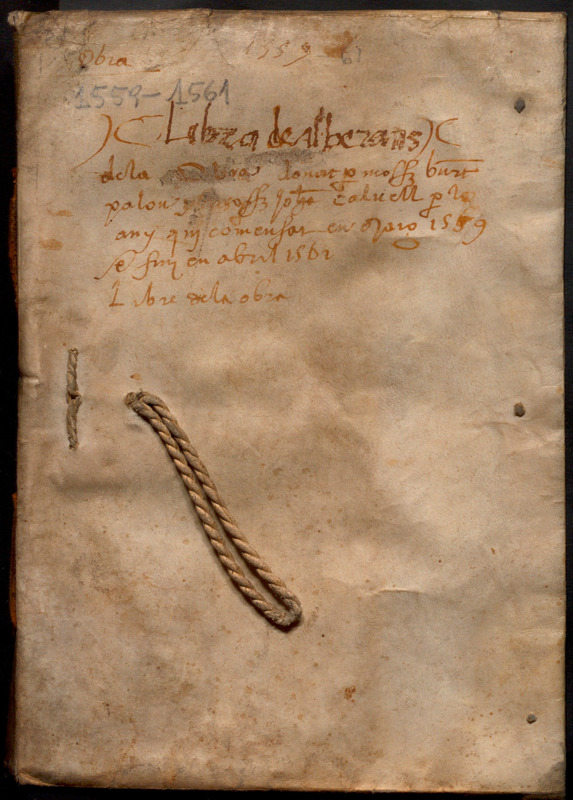 Obra 1559-61
1559-1561
Libra de alberans
dela Obra donat p mossz burt
palou y mossz Johe calvell p lo
any qui comensat en mars 1559
e finj en abril 1561
Libre dela obra